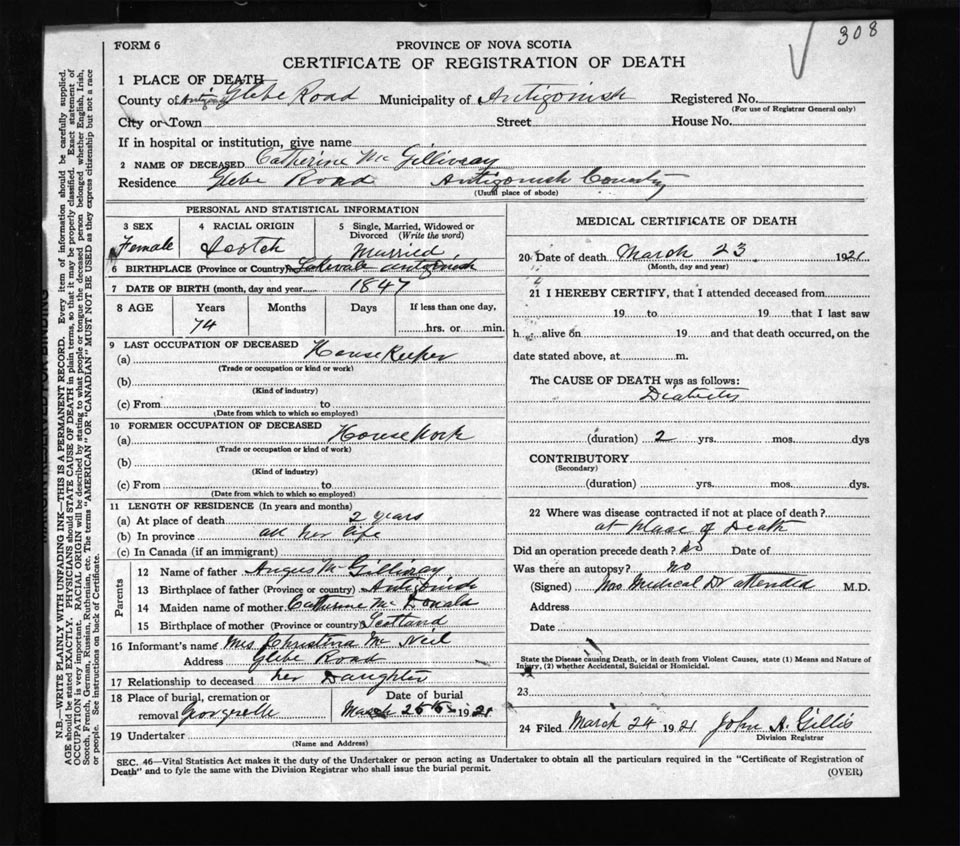 308
FORM 6
PROVINCE OF NOVA SCOTIA
CERTIFICATE OF REGISTRATION OF DEATH
1 PLACE OF DEATH
County of Antigonish Glebe Road Municipality of Antigonish Registered No.
(For use of Registrar General only)
City or Town Street House No.
If in hospital or institution, give name
2 NAME OF DECEASED Catherine Mc Gillivray
Residence Glebe Road Antigonish County
(Usual place of abode)
PERSONAL AND STATISTICAL INFORMATION
3 SEX 4 RACIAL ORIGIN 5 Single, Married, Widowed or Divorced (Write the word)
Female Scotch Married
6 BIRTHPLACE (Province or Country) Lakevale Antigonish
7 DATE OF BIRTH (month, day and year 1847
8 AGE Years Months Days If less than one day,
74 hrs. or min.
9 LAST OCCUPATION OF DECEASED
(a) House Keeper
(Trade or occupation or kind or work)
(b)
(Kind of industry)
(c) From to
(Date from which to which so employed)
10 FORMER OCCUPATION OF DECEASED
(a) House Work
(Trade or occupation or kind of work)
(b)
(Kind of industry)
(c) From to
(Date from which to which so employed)
11 LENGTH OF RESIDENCE (In years and months)
(a) At place of death 2 years
(b) In province all her life
(c) In Canada (if an immigrant)
Parents
12 Name of father Angus McGillivray
13 Birthplace of father (Province or country) Antigonish
14 Maiden name of mother Catherine McDonald
15 Birthplace of mother (Province or country) Scotland
16 Informant's name Mrs Christina Mc Neil
Address Glebe Road
17 Relationship to deceased her Daughter
18 Place of burial, cremation or removal Georgeville
Date of burial March 25 1921
19 Undertaker
(Name and Address)
MEDICAL CERTIFICATE OF DEATH
20 Date of death March 23 1921
(Month, day and year)
21 I HEREBY CERTIFY, that I attended deceased from
19 to 19 that I last saw
h alive on 19 and that death occurred, on the
date stated above, at m.
The CAUSE OF DEATH was as follows:
(duration) 2 yrs. mos. dys
CONTRIBUTORY
(Secondary)
(duration) yrs. mos. dys.
22 Where was disease contracted if not at place of death?
at place of Death
Did an operation precede death? no Date of
Was there an autopsy? no
(Signed) No Medical Dr attended M.D.
Address
Date
State the Disease causing Death, or in death from Violent Causes, state (1) Means and Nature of
Injury, (2) whether Accidental, Suicidal or Homicidal.
23
24 Filed March 24 1921 John A. Gillis
Division Registrar
SEC. 46—Vital Statistics Act makes it the duty of the Undertaker or person acting as Undertaker to obtain all the particulars required in the "Certificate of Registration of
Death" and to fyle the same with the Division Registrar who shall issue the burial permit.
(OVER)
N.B.—WRITE PLAINLY WITH UNFADING INK—THIS IS A PERMANENT RECORD. Every item of information should be carefully supplied.
AGE should be stated EXACTLY. PHYSICIANS should STATE CAUSE OF DEATH in plain terms, so that it may be properly classified. Exact statement of
OCCUPATION is very important. RACIAL ORIGIN will be described by stating to what people or tongue the deceased person belonged whether English, Irish,
Scotch, French, German, Russian, Ruthenian, etc. The terms "AMERICAN" OR "CANADIAN" MUST NOT BE USED as they express citizenship but not a race
or people. See instructions on back of Certificate.